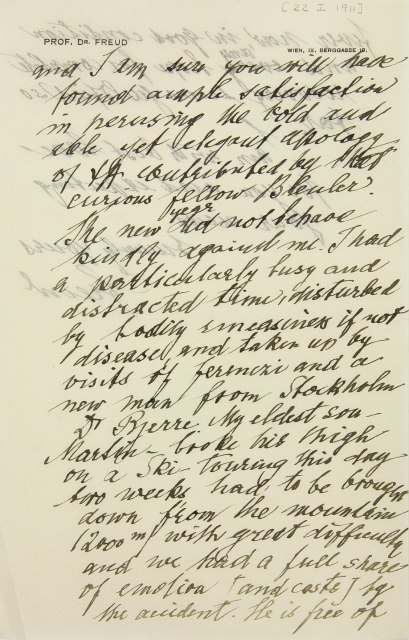 [22 I 1911]
PROF. DR. FREUD
WIEN, IX. BERGGASSE 19.
and I am sure you will have
found ample satisfaction
in perusing the cold and
able yet elegant apology
of ΨA contributed by that
curious fellow Bleuler.
The new year did not behave
kindly against me. I had
a particularly busy and
distracted time, disturbed
by bodily uneasiness if not
disease, and taken up by
visits of Ferenczi and a
new man from Stockholm
Dr Bjerre. My eldest son
Martin – broke his thigh
on a Ski touring this day
two weeks had to be brought
down from the mountain
(2000 m) with great difficulty
and we had a full share
of emotion [and costs] by
the accident. He is free of